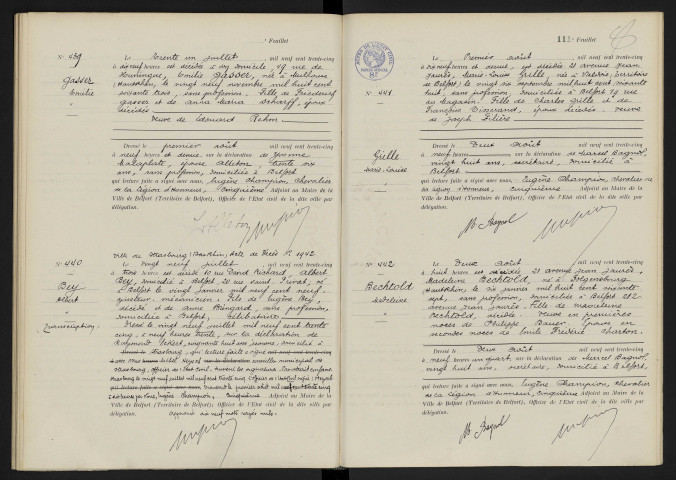 Feuillet
N° 439
Gasser
Emilie
Le trente un juillet mil neuf cent trente-cinq
à neuf heures est décédée à son domicile, 49 rue de
Huningue, Emilie Gasser, née à Mulhouse
(Haut-Rhin), le vingt neuf novembre mil huit cent
soixante trois, sans profession. Fille de
Gasser et de Anna Maria Scharff, époux
décédés.
Veuve de Edouard Rehm
Dressé le premier août mil neuf cent trente-cinq
à neuf heures et demie, sur la déclaration de Yvonne
épouse trente six
ans, sans profession, domiciliée à Belfort
qui lecture faite a signé avec nous, Eugène Champion, Chevalier
de la Légion d'Honneur, cinquième Adjoint au Maire de la
Ville de Belfort (Territoire de Belfort), Officier de l'Etat civil de la dite ville par
délégation.
N° 440
Bey
Albert
(transcription)
Ville de Strasbourg (Bas-Rhin) Acte de Décès N° 1942
Le vingt neuf juillet mil neuf cent trente-cinq
à trois heures est décédé 10 rue David Richard, Albert
Bey, domicilié à Belfort, 20 rue Saint Privat, né
à Belfort le vingt janvier mil neuf cent neuf
mécanicien. Fils de Eugène Bey,
décédé et de Anne Bingard, sans profession,
domiciliée à Belfort, Célibataire
Dressé le vingt neuf juillet mil neuf cent trente
cinq, à neuf heures trente, sur la déclaration de
Raymond cinquante huit ans, domicilié à
Strasbourg, qui lecture faite a signé
Eugène Champion, cinquième Adjoint au Maire de la
Ville de Belfort (Territoire de Belfort), Officier de l'Etat civil de la dite ville par
délégation.
Approuvé dix neuf mots rayés nuls
112 Feuillet
N° 441
Grille
Marie-Louise
Le Premier août mil neuf cent trente-cinq
à dix neuf heures et demie, est décédée 21 avenue Jean
Jaurès, Marie-Louise Grille, née à Valdoie (Territoire
de Belfort) le vingt six septembre mil huit cent
huit, sans profession, domiciliée à Belfort 19 rue
du Magasin. Fille de Charles Grille et de
Françoise époux décédés. Veuve
de Joseph
Dressé le Deux août mil neuf cent trente-cinq
à neuf heures sur la déclaration de Marcel Bagnol,
vingt huit ans, secrétaire, domicilié à
Belfort
qui lecture faite a signé avec nous, Eugène Champion, Chevalier de
la Légion d'Honneur, cinquième Adjoint au Maire de la
Ville de Belfort (Territoire de Belfort), Officier de l'Etat civil de la dite ville par
délégation.
M. Bagnol
N° 442
Bechtold
Madeleine
Le Deux août mil neuf cent trente-cinq
à huit heures est décédée 21 avenue Jean Jaurès,
Madeleine Bechtold, née à Folgensbourg
(Haut-Rhin) le six janvier mil huit cent soixante
sept, sans profession, domiciliée à Belfort 212
avenue Jean Jaurès. Fille de Madeleine
Bechtold, décédée. Veuve en premières
noces de Philippe Bauer. Epouse en
secondes noces de Emile Frédéric Charton.
Dressé le Deux août mil neuf cent trente-cinq
à neuf heures un quart, sur la déclaration de Marcel Bagnol,
vingt huit ans, secrétaire, domicilié à Belfort,
qui lecture faite a signé avec nous, Eugène Champion, Chevalier
de la Légion d'Honneur, cinquième Adjoint au Maire de la
Ville de Belfort (Territoire de Belfort), Officier de l'Etat civil de la dite ville par
délégation.
M. Bagnol